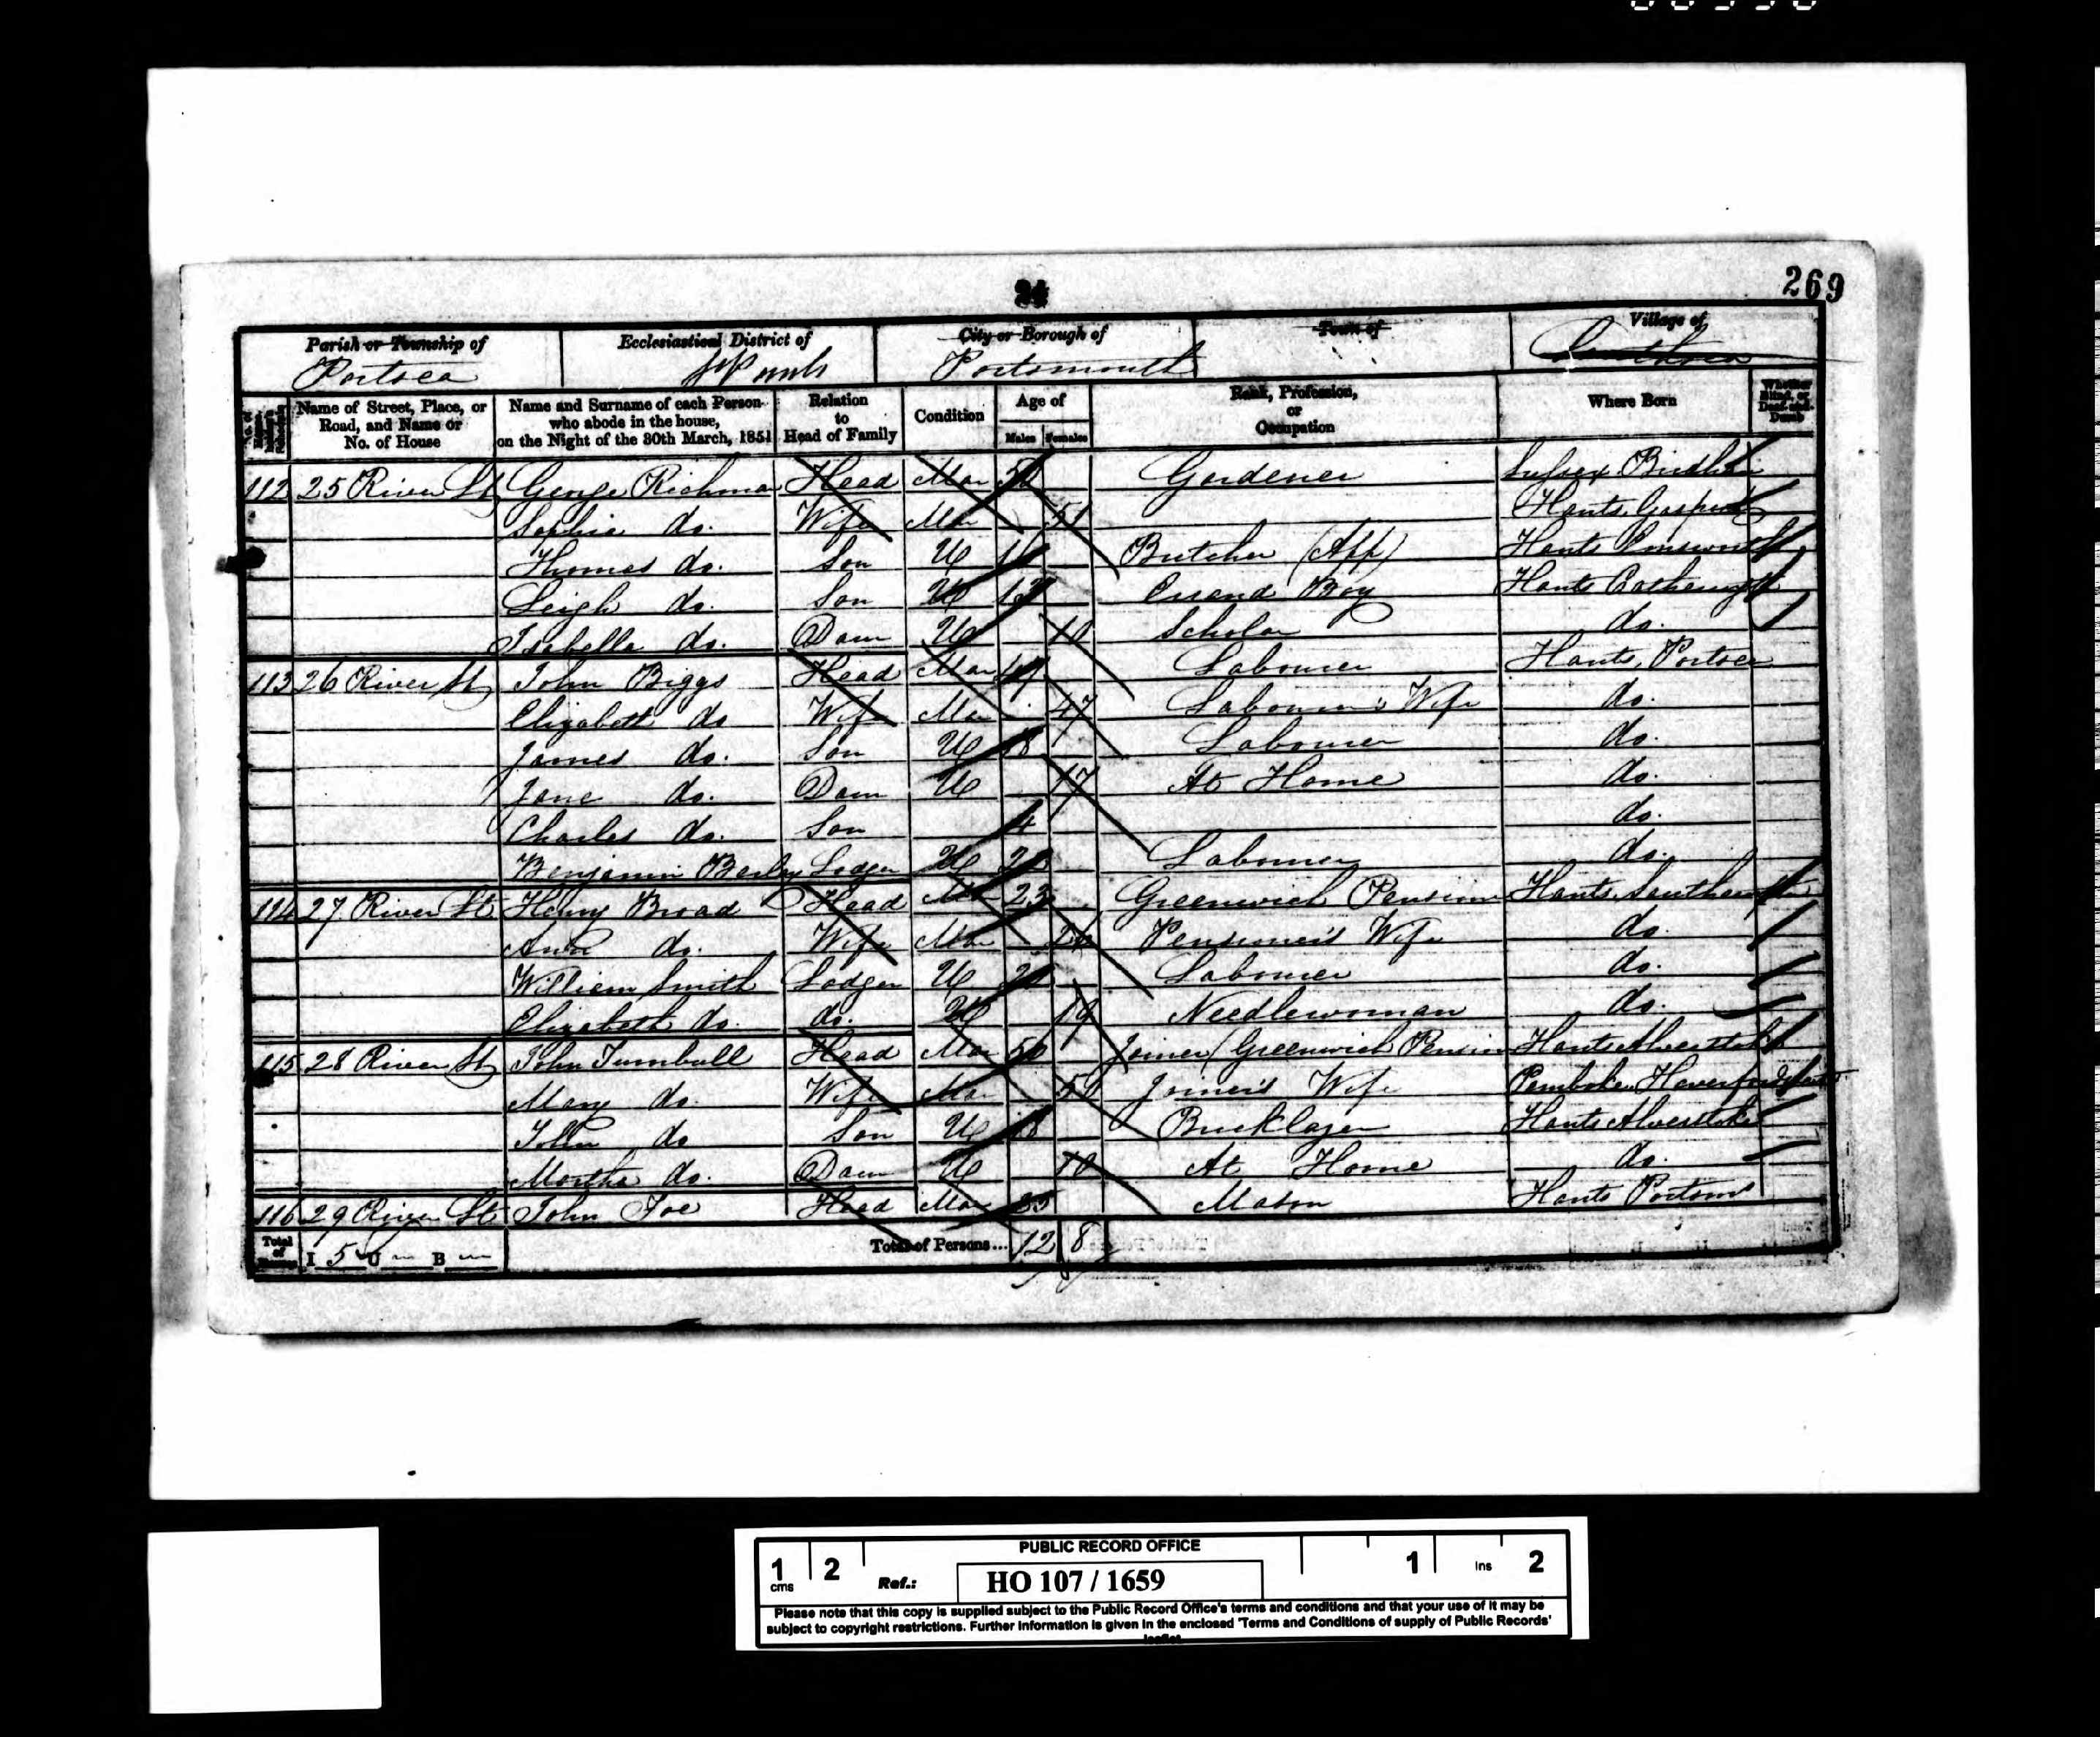 269
24
Parish or Township of
Portsea
Ecclesiastical District of
St Pauls
City or Borough of
Portsmouth
Town of
Village of
Southsea
Name of Street, Place, or Road, and Name or No. of House
Name and Surname of each Person who abode in the house, on the Night of the 30th March, 1851
Relation to Head of Family
Condition
Age of
Males Females
Rank, Profession, or Occupation
Where Born
Whether Blind, or Deaf-and-Dumb
112 25 River St George Richman Head Mar Gardener Sussex
Sophia do. Wife Mar 51 Hants Gosport
Thomas do. Son U 16 Butcher (App) Hants Emsworth
Leigh do. Son U 13 Errand Boy Hants Catherington
Isabella do. Daur U 10 Scholar do.
113 26 River St John Biggs Head Mar 49 Labourer Hants, Portsea
Elizabeth do Wife Mar 47 Labourer's Wife do.
James do. Son U 18 Labourer do.
Jane do. Daur U 17 At Home do.
Charles do. Son 4 do.
Benjamin Lodger U Labourer do.
114 27 River St Henry Broad Head Mar 23 Greenwich Pension Hants
Ann do. Wife Mar Pensioner's Wife do.
William Smith Lodger U Labourer do.
Elizabeth do. do. U 19 Needlewoman do.
115 28 River St John Turnbull Head Mar 50 Joiner/Greenwich Pension Hants Alverstoke
Mary do. Wife Mar Joiner's Wife Pembroke
John do Son U 18 Bricklayer Hants Alverstoke
Martha do. Daur U 10 At Home do.
116 29 River St John Foe Head Mar 35 Mason Hants Portsmo
Total of Houses I 5 U — B —
Total of Persons... 12 8
PUBLIC RECORD OFFICE
1 cms 2
Ref.: HO 107 / 1659
1 Ins 2
Please note that this copy is supplied subject to the Public Record Office's terms and conditions and that your use of it may be
subject to copyright restrictions. Further information is given in the enclosed 'Terms and Conditions of supply of Public Records'
leaflet